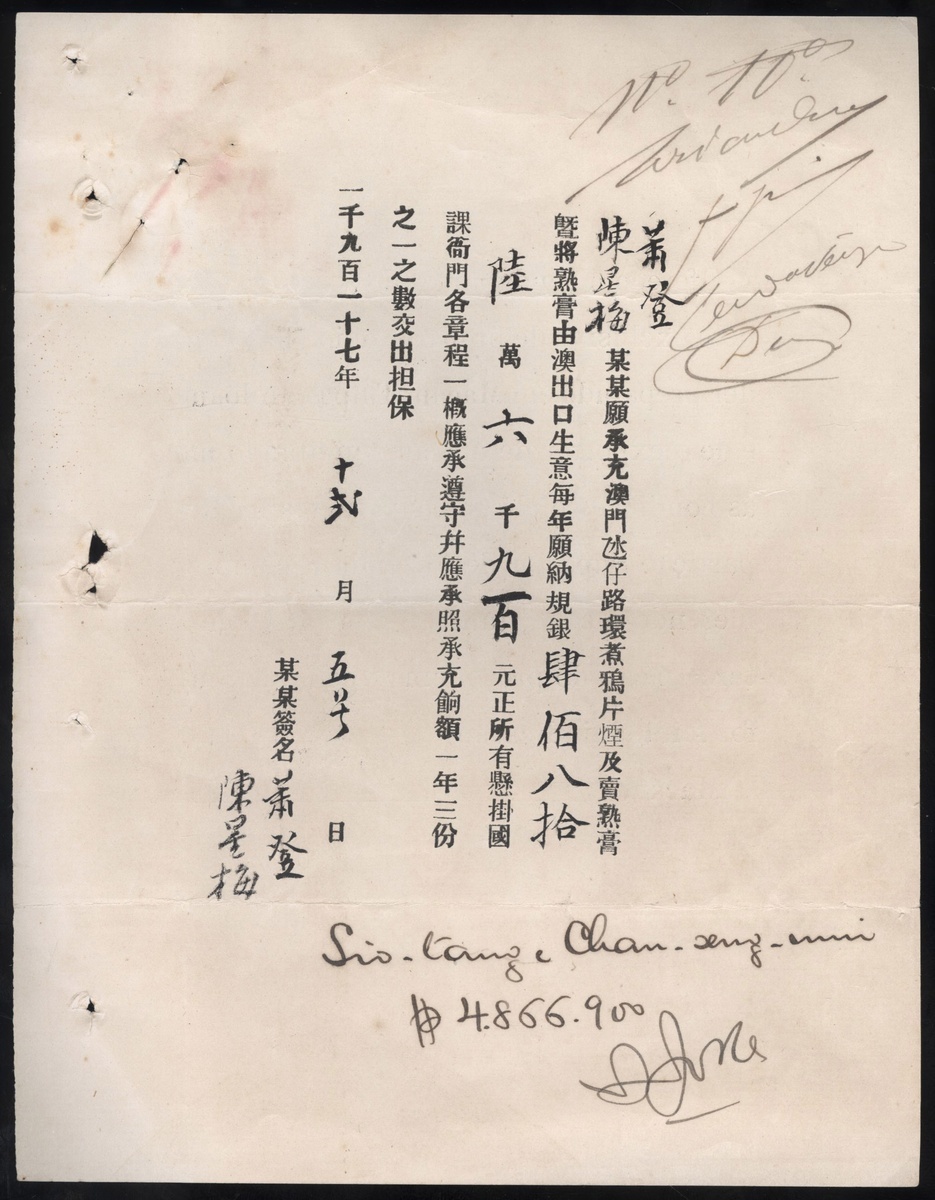 蕭登
陳星梅
某某願承充澳門氹仔路環煮鴉片煙及賣熟膏
曁將熟膏由澳出口生意每年願納規銀肆佰八拾
陸萬六千九百元正所有懸掛國
課衙門各章程一概應承遵守幷應承照承充餉額一年三份
之一之數交出担保
一千九百一十七年十弍月五号日
某某簽名蕭登
陳星梅
Sio-tang e Chan-seng-mui
$ 4.866.900